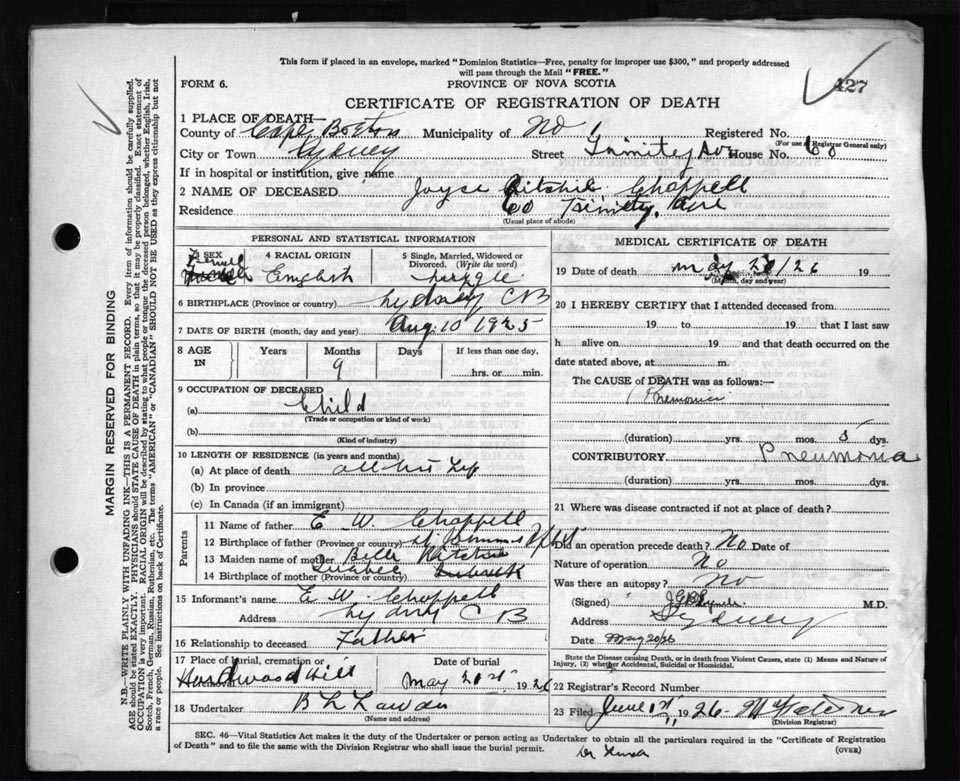 This form if placed in an envelope, marked "Dominion Statistics—Free, penalty for improper use $300," and properly addressed
will pass through the Mail "FREE."
427
FORM 6.
PROVINCE OF NOVA SCOTIA
CERTIFICATE OF REGISTRATION OF DEATH
1 PLACE OF DEATH—
County of Cape Breton Municipality of No 1 Registered No.
(For use of Registrar General only)
City or Town Sydney Street Trinity Ave House No. 60
If in hospital or institution, give name
2 NAME OF DECEASED Joyce Ritchie Chappell
Residence 60 Trinity Ave
(Usual place of abode)
PERSONAL AND STATISTICAL INFORMATION
3 SEX Female
4 RACIAL ORIGIN English
5 Single, Married, Widowed or Divorced. (Write the word) Single
6 BIRTHPLACE (Province or country) Sydney CB
7 DATE OF BIRTH (month, day and year) Aug. 10 1925
8 AGE IN Years Months Days If less than one day,
9
hrs. or min.
9 OCCUPATION OF DECEASED
(a) Child
(Trade or occupation or kind of work)
(b)
(Kind of industry)
10 LENGTH OF RESIDENCE (in years and months)
(a) At place of death all his Life
(b) In province
(c) In Canada (if an immigrant)
Parents
11 Name of father E W Chappell
12 Birthplace of father (Province or country) St. Nfld
13 Maiden name of mother Belle Ritchie
14 Birthplace of mother (Province or country) Quebec
15 Informant's name E. W. Chappell
Address Sydney C B
16 Relationship to deceased Father
17 Place of burial, cremation or removal Hardwood Hill
Date of burial May 21st 1926
18 Undertaker
(Name and address)
MEDICAL CERTIFICATE OF DEATH
19 Date of death May 20/26 19
(Month, day and year)
20 I HEREBY CERTIFY that I attended deceased from
19 to 19 that I last saw
h alive on 19 and that death occurred on the
date stated above, at m.
The CAUSE of DEATH was as follows:—
Pnemonia
(duration) yrs. mos. 5 dys.
CONTRIBUTORY Pneumonia
(duration) yrs. mos. dys.
21 Where was disease contracted if not at place of death?
Did an operation precede death? No Date of
Nature of operation No
Was there an autopsy? No
(Signed) M.D.
Address Sydney
Date May 20/26
State the Disease causing Death, or in death from Violent Causes, state (1) Means and Nature of
Injury, (2) whether Accidental, Suicidal or Homicidal.
22 Registrar's Record Number
23 Filed June 1st 1926
(Division Registrar)
SEC. 46—Vital Statistics Act makes it the duty of the Undertaker or person acting as Undertaker to obtain all the particulars required in the "Certificate of Registration
of Death" and to file the same with the Division Registrar who shall issue the burial permit.
(OVER)
MARGIN RESERVED FOR BINDING
N.B.—WRITE PLAINLY WITH UNFADING INK—THIS IS A PERMANENT RECORD. Every item of information should be carefully supplied.
AGE should be stated EXACTLY. PHYSICIANS should STATE CAUSE OF DEATH in plain terms, so that it may be properly classified. Exact statement of
OCCUPATION is very important. RACIAL ORIGIN will be described by stating to what people or tongue the deceased person belonged, whether English, Irish,
Scotch, French, German, Russian, Ruthenian, etc. The terms "AMERICAN" or "CANADIAN" SHOULD NOT BE USED as they express citizenship but not
a race or people. See instructions on back of Certificate.